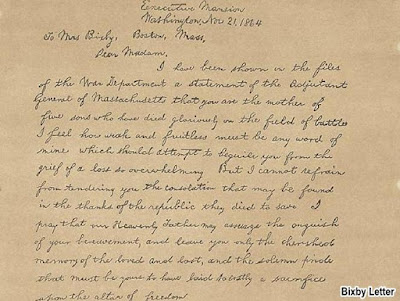 Executive Mansion
Washington, Nov 21, 1864
To Mrs Bixby, Boston, Mass,
Dear Madam,
I have been shown in the files
of the War Department a statement of the Adjutant
General of Massachusetts that you are the mother of
five sons who have died gloriously on the field of battle
I feel how weak and fruitless must be any word of
mine which should attempt to beguile you from the
grief of a loss so overwhelming But I cannot refrain
from tendering you the consolation that may be found
in the thanks of the republic they died to save I
pray that our Heavenly Father may assuage the anguish
of your bereavement, and leave you only the cherished
memory of the loved and lost, and the solemn pride
that must be yours to have laid so costly a sacrifice
upon the altar of freedom
Bixby Letter